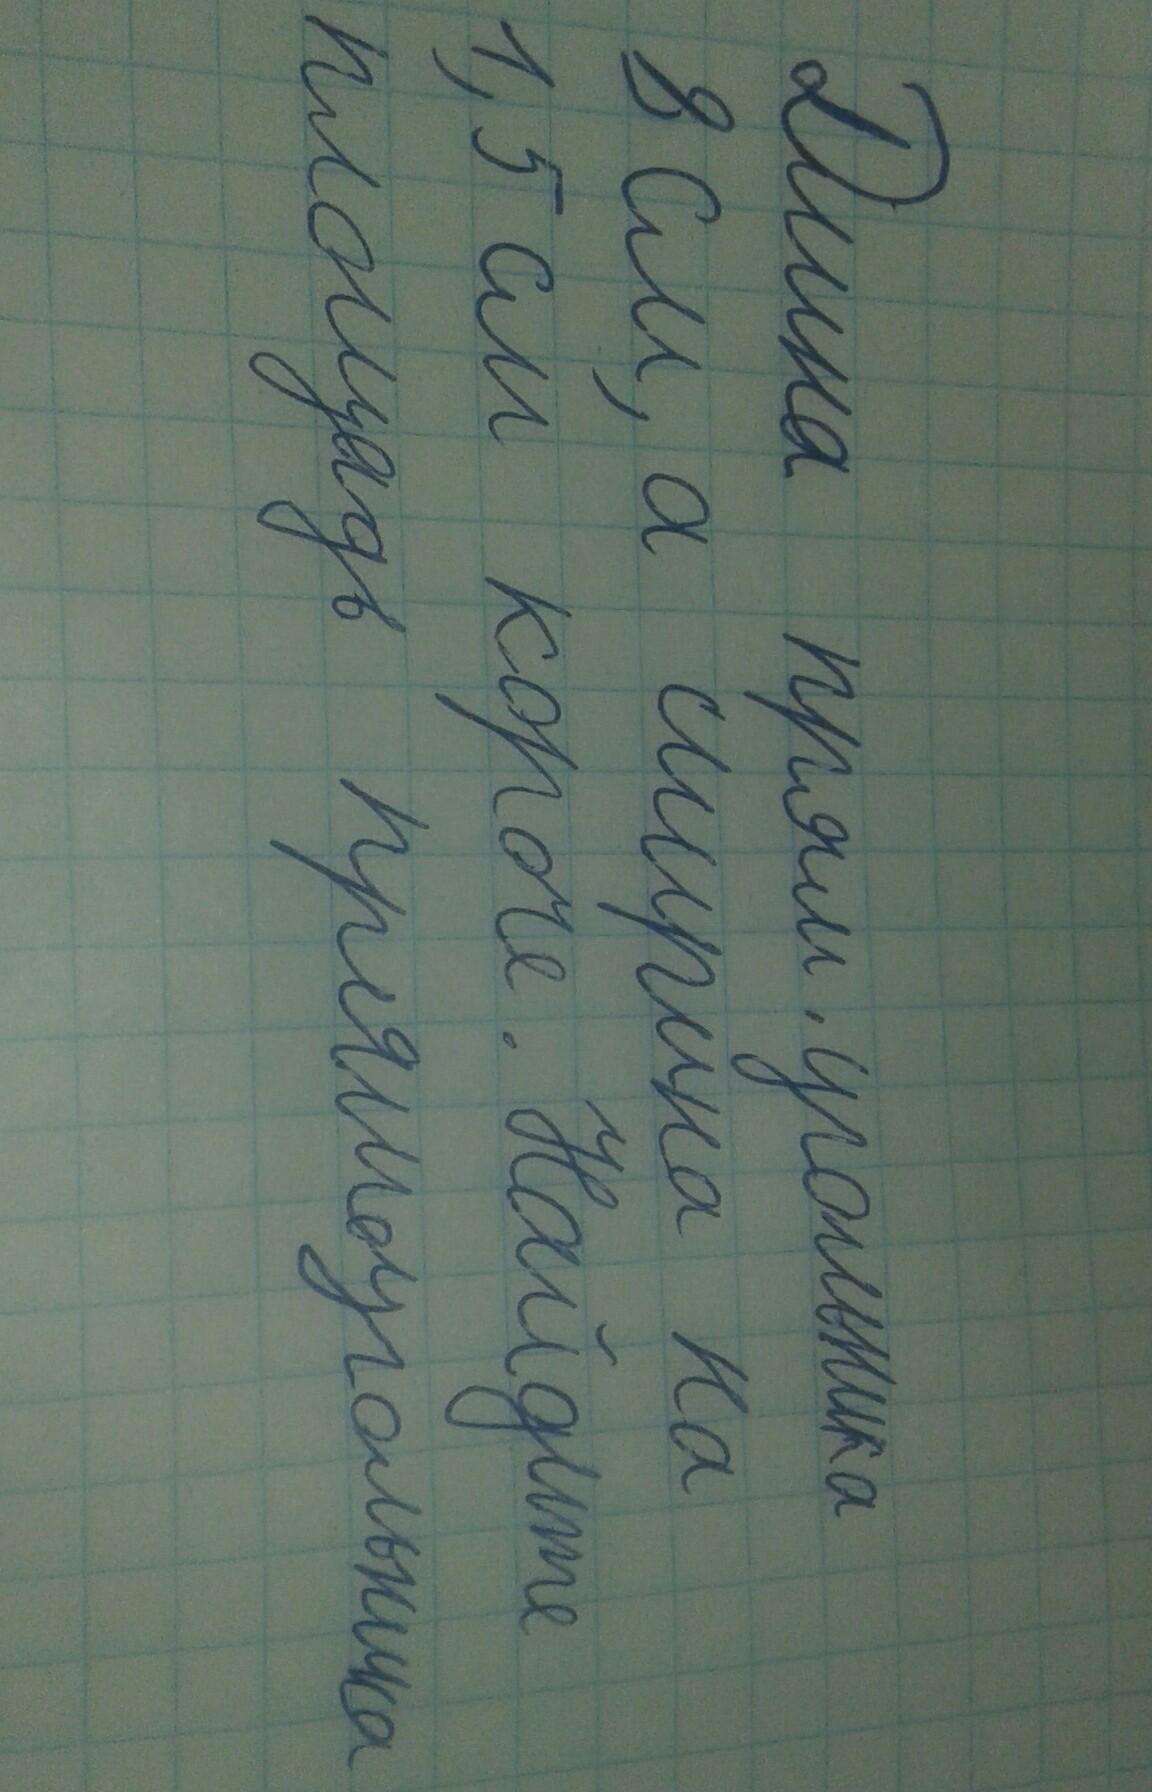 Длина прям.угольника
8 см, а ширина на
1,5 см короче. Найдите
площадь прямоугольника